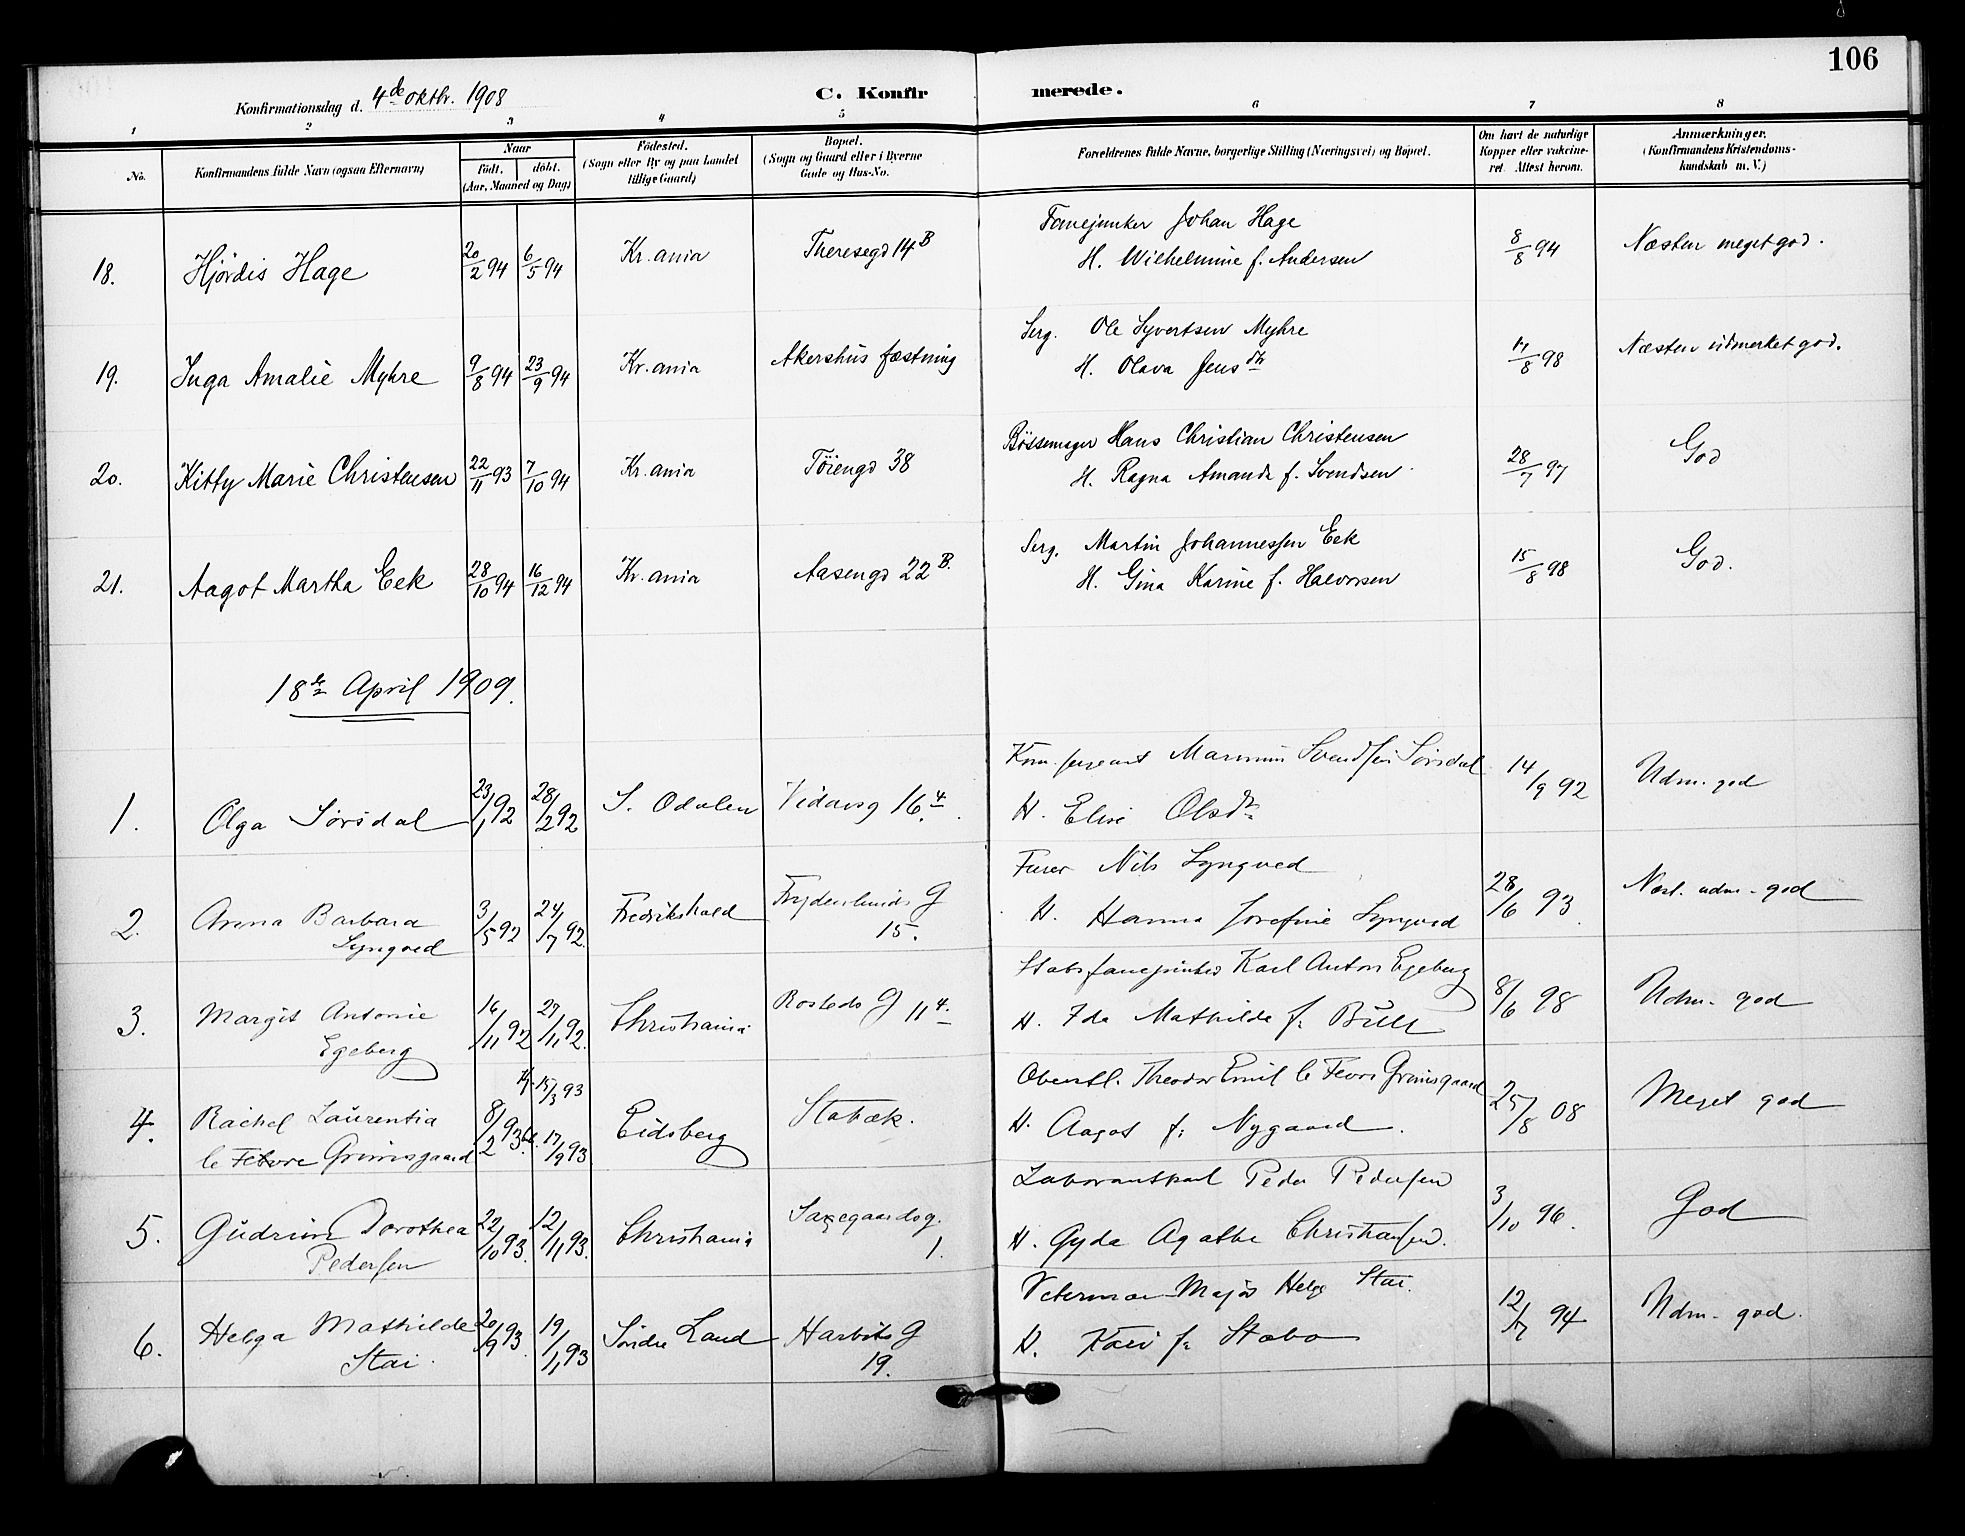 106
Konfirmationsdag d. 4de oktbr. 1908
C. Konfir merede.
1 2 3 4 5 6 7 8
No.
Konfirmandens fulde Navn (ogsaa Efternavn)
Naar
født. døbt.
(Aar, Maaned og Dag)
Fødested.
(Sogn eller By og paa Landet
tillige Gaard)
Bopæl.
(Sogn og Gaard eller i Byerne
Gade og Hus-No.
Forældrenes fulde Navne, borgerlige Stilling (Næringsvei) og Bopæl.
Om havt de naturlige
Kopper eller vakcine-
ret. Attest herom.
Anmærkninger.
(Konfirmandens Kristendoms-
kundskab m. V.)
18. Hjördis Hage 20/2 94 6/5 94 Kr.ania Theresegd 14 B
Fanejunker Johan Hage
H. Wilhelmine f. Andersen
8/8 94 Næsten meget god.
19. Inga Amalie Myhre 9/8 94 23/9 94 Kr.ania Akershus fæstning
Serg. Ole Syvertsen Myhre
H. Olava Jensdtr
/8 98 Næsten udmerket god.
20. Kitty Marie Christensen 22/11 93 7/10 94 Kr.ania Töiengd 38
Bössemager Hans Christian Christensen
H. Ragna Amanda f. Svendsen
28/7 97 God
21. Aagot Martha Eek 28/10 94 16/12 94 Kr.ania Aasengd 22 B.
Serg. Martin Johannessen Eek
H. Gina Karine f. Halvorsen
15/8 98 God.
18de April 1909.
1. Olga Sørsdal 23/1 92 28/2 92 S. Odalen Vidarsg 16.4
Kom.sergeant Svendsen Sørsdal
H. Elise Olsdtr
14/9 92 Udm. god
2. Anna Barbara
Lyngved
3/5 92 24/7 92. Fredrikshald
Frydenlunds G
15.
Furer Nils Lyngved
H. Hanna Josefine Lyngved
28/6 93. Næst. udm. god
3. Margit Antonie
Egeberg
16/11 92 27/11 92. Christiania
Rosteds G 11 4.
Stabsfanejunker Karl Anton Egeberg
H. Ida Mathilde f. Bull
8/6 98 Udm. god
4. Rachel Laurentia
le Febvre Grimsgaard
8/2 93. 15/3 93
17/9 93 Eidsberg Stabæk.
Oberstl. Theodor Emil le Fevre Grimsgaard
H. Aagot f. Nygaard.
25/8 08 Meget god
5. Gudrun Dorothea
Pedersen
22/10 93. 12/11 93. Christiania
Saxegaardsg.
1.
Laborantkarl Peder Pedersen
H. Gyda Agathe Christiansen.
3/10 96. God
6. Helga Mathilde
Stai.
20/9 93. 19/11 93 Søndre Land
Harbitz G
19.
Veterinær Major Helge Stai.
H. Kari f. Stabo
12/7 94 Udm. god.